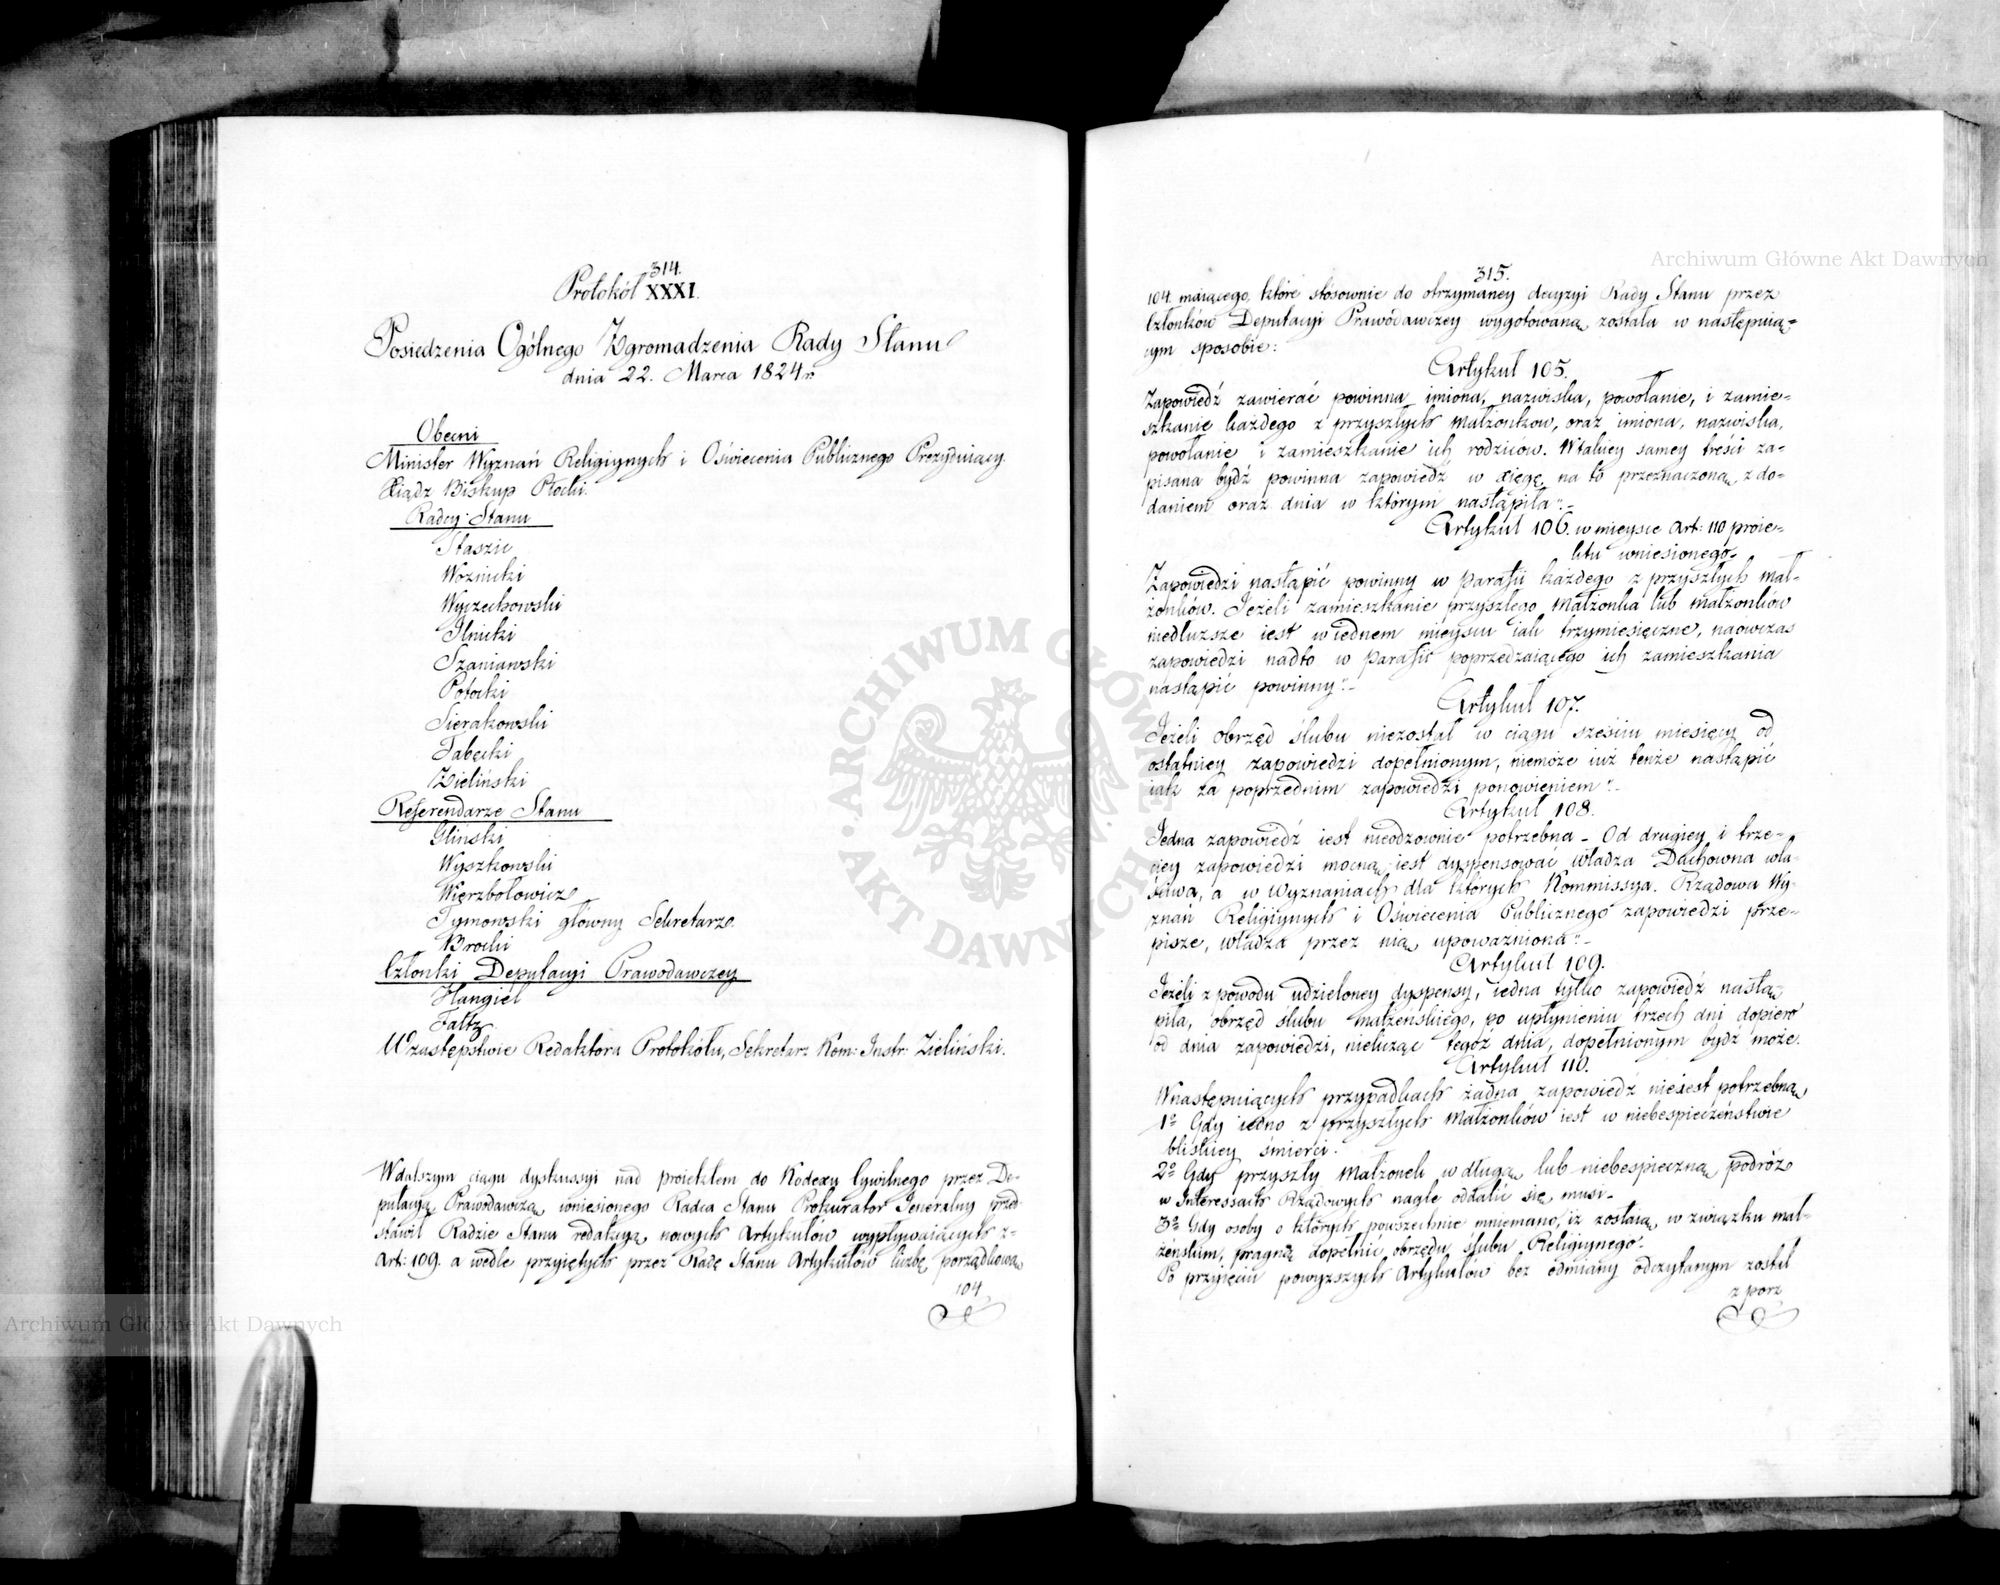 314.
Protokół XXXI.
Posiedzenia Ogólnego Zgromadzenia Rady Stanu
dnia 22. Marca 1824 r.
Obecni
Minister Wyznań Religiynych i Oświecenia Publicznego Prezyduiący
Xiądz Biskup Płocki.
Radcy Stanu
Staszic
Woźnicki
Wyczechowski
Ilnicki
Szaniawski
Potocki
Sierakowski
Tabęcki
Zieliński
Referendarze Stanu
Gliński
Wyszkowski
Wierzbołowicz
Tymowski główny Sekretarz
Brocki
Członki Deputacyi Prawodawczey
Hangiel
Faltz
W zastępstwie Redaktora Protokółu, Sekretarz Kom: Instr: Zieliński.
W dalszym ciągu dyskussyi nad proiektem do Kodexu Cywilnego przez De-
putacyą Prawodawczą wniesionego Radca Stanu Prokurator Jeneralny przed-
stawił Radzie Stanu redakcyą nowych Artykułów wypływaiących z
Art: 109. a wedle przyiętych przez Radę Stanu Artykułów liczbę porządkową
104
315.
104. maiącego, które stósownie do otrzymaney decyzyi Rady Stanu przez
Członków Deputacyi Prawodawczey wygotowaną została w następuią-
cym sposobie:
Artykuł 105.
Zapowiedź zawierać powinna imiona, nazwiska, powołanie, i zamie-
szkanie każdego z przyszłych Małżonków, oraz imiona, nazwiska,
powołanie i zamieszkanie ich rodziców. W takiey samey treści za-
pisana bydź powinna zapowiedź w xięgę na to przeznaczoną z do-
daniem oraz dnia w którym nastąpiła".-
Artykuł 106. w mieysce Art: 110 proie-
ktu wniesionego.
Zapowiedzi nastąpić powinny w Parafii każdego z przyszłych mał-
żonków. Jeżeli zamieszkanie przyszłego Małżonka lub Małżonków
niedłuższe iest w iednem mieyscu iak trzymiesięczne, naówczas
zapowiedzi nadto w Parafii poprzedzaiącego ich zamieszkania
nastąpić powinny".-
Artykuł 107.
Jeżeli obrzęd ślubu niezostał w ciągu sześciu miesięcy od
ostatniey zapowiedzi dopełnionym, niemoże iuż tenże nastąpić
iak za poprzednim zapowiedzi ponowieniem".-
Artykuł 108.
Jedna zapowiedź iest nieodzownie potrzebna - Od drugiey i trze-
ciey zapowiedzi mocną iest dyspensować władza Duchowna wła-
ściwa, a w Wyznaniach dla których Kommissya Rządowa Wy-
znań Religiynych i Oświecenia Publicznego zapowiedzi prze-
pisze, władza przez nią upoważniona".-
Artykuł 109.
Jeżeli z powodu udzieloney dyspensy, iedna tylko zapowiedź nastą-
piła, obrzęd ślubu małżeńskiego, po upłynieniu trzech dni dopiero
od dnia zapowiedzi, nielicząc tegoż dnia, dopełnionym bydź może.
Artykuł 110.
W następuiących przypadkach żadna zapowiedź nieiest potrzebną
1º Gdy iedno z przyszłych Małżonków iest w niebespieczeństwie
bliskiey śmierci.
2º Gdy przyszły Małżonek w długą lub niebespieczną podróż
w Interessach Rządowych nagle oddalić się musi.
3º Gdy osoby o których powszechnie mniemano, iż zostaią w związku mał-
żeńskim, pragną dopełnić obrzędu ślubu Religiynego.
Po przyięciu powyższych Artykułów bez odmiany odczytanym został
z porz
Archiwum Główne Akt Dawnych
Archiwum Główne Akt Dawnych
ARCHIWUM GŁÓWNE AKT DAWNYCH